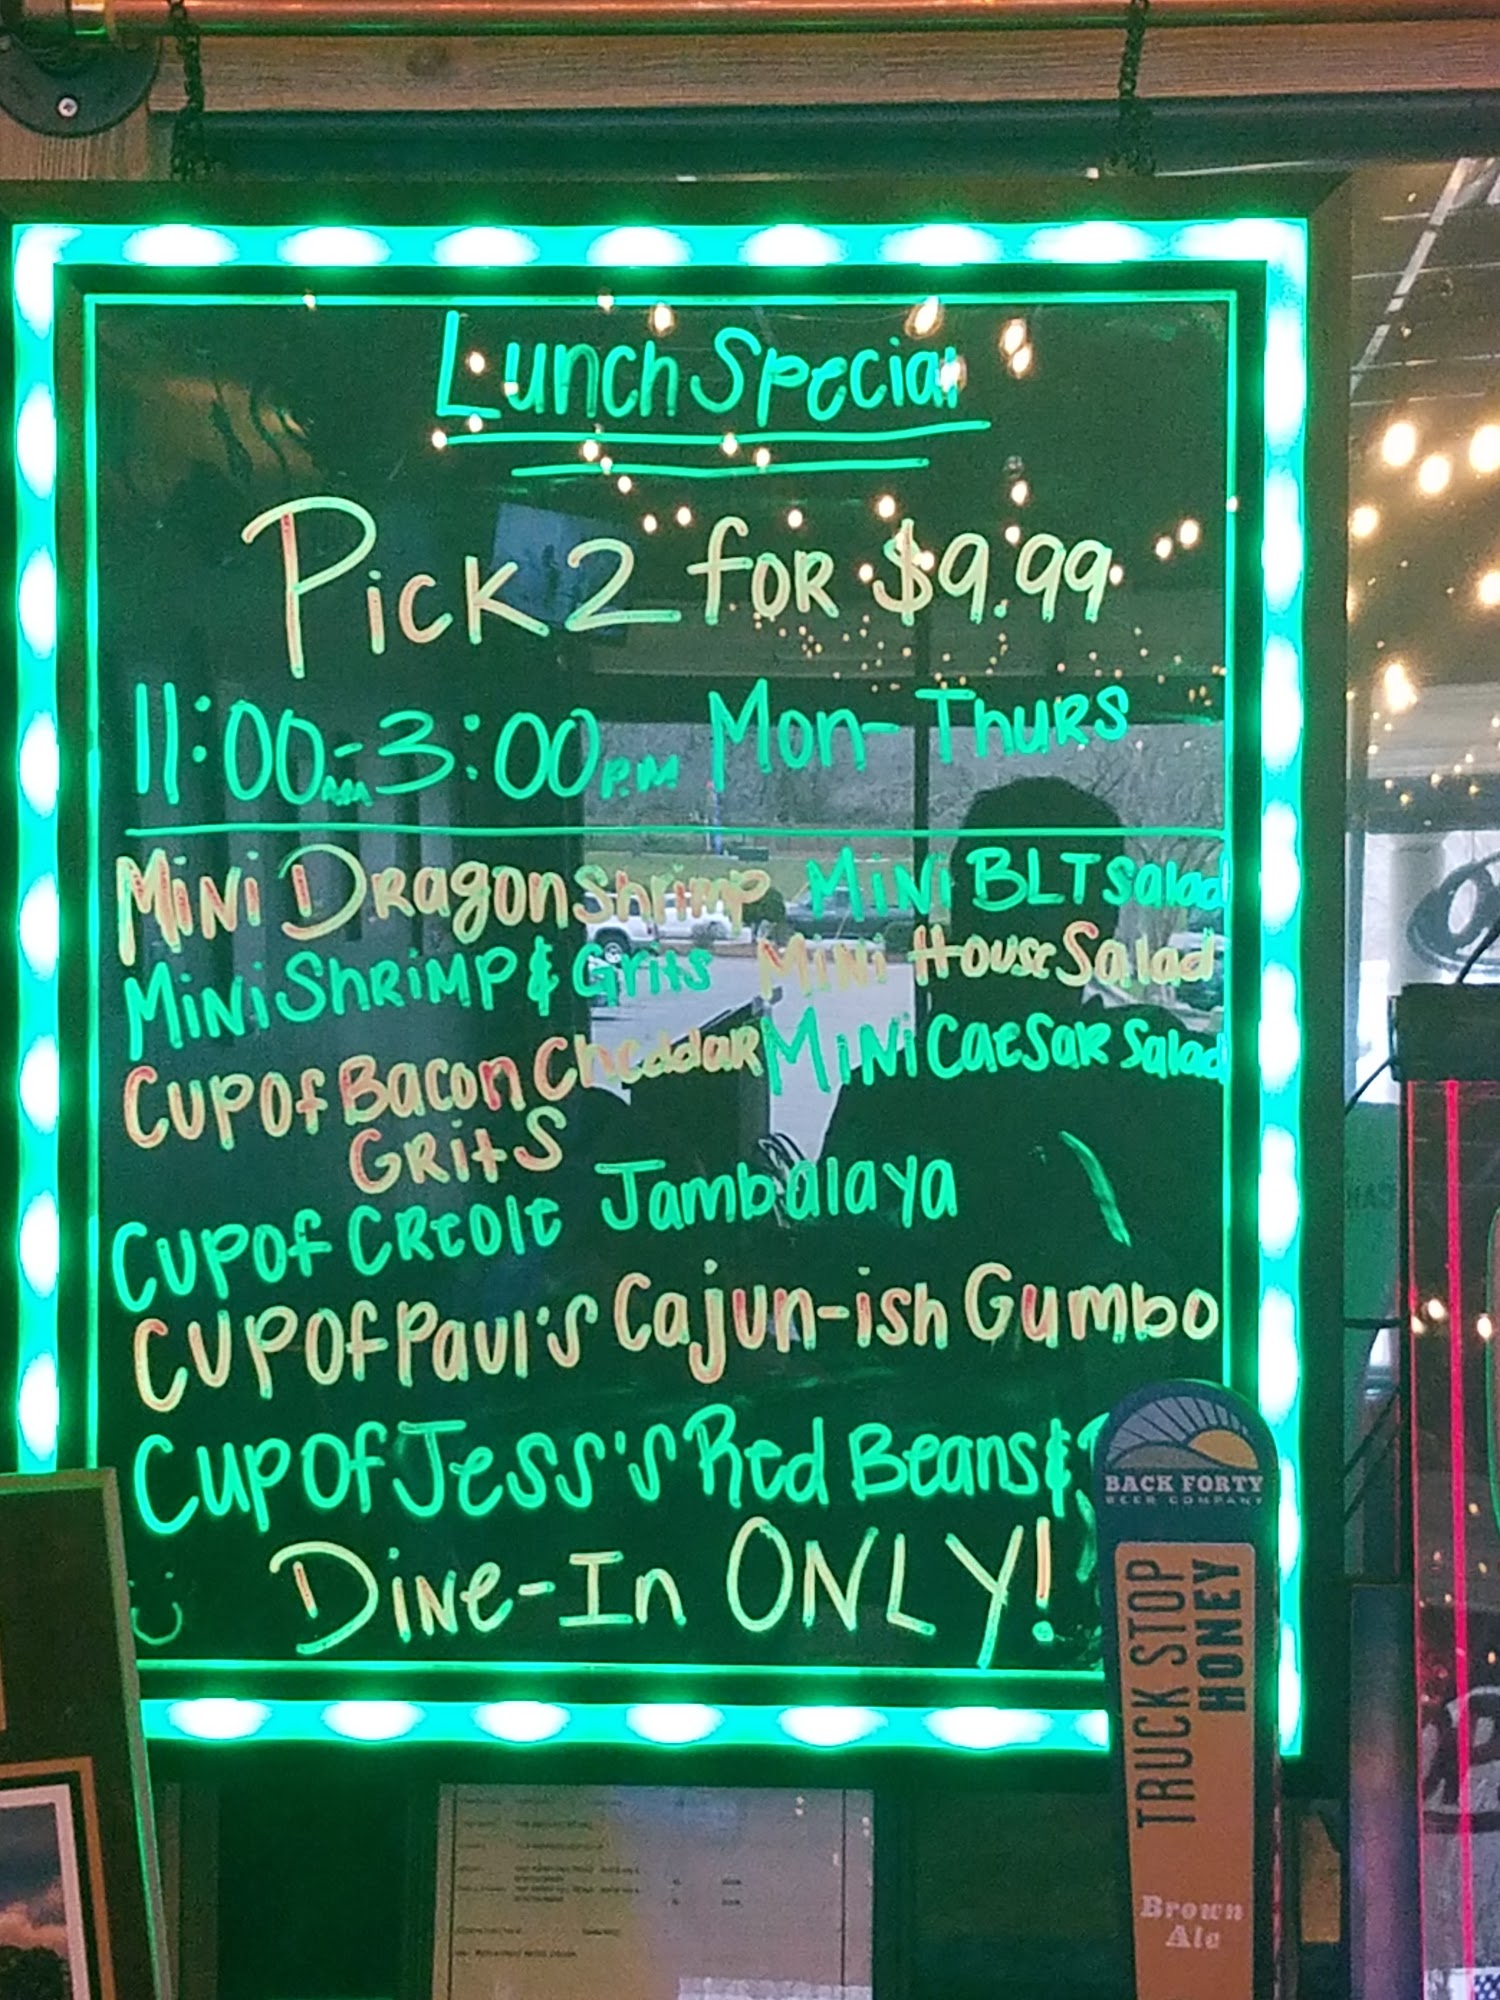 Lunch Special
Pick 2 for $9.99
11:00am-3:00pm Mon-Thurs
Mini Dragon Shrimp
Mini Shrimp & Grits
Cup of Bacon Cheddar
Grits
Mini BLT Salad
Mini House Salad
Mini Caesar Salad
Cup of Creole Jambalaya
Cup of Paul's Cajun-ish Gumbo
Cup of Jess's Red Beans &
Dine-In ONLY!
BACK FORTY
BEER COMPANY
TRUCK STOP
HONEY
Brown
Ale